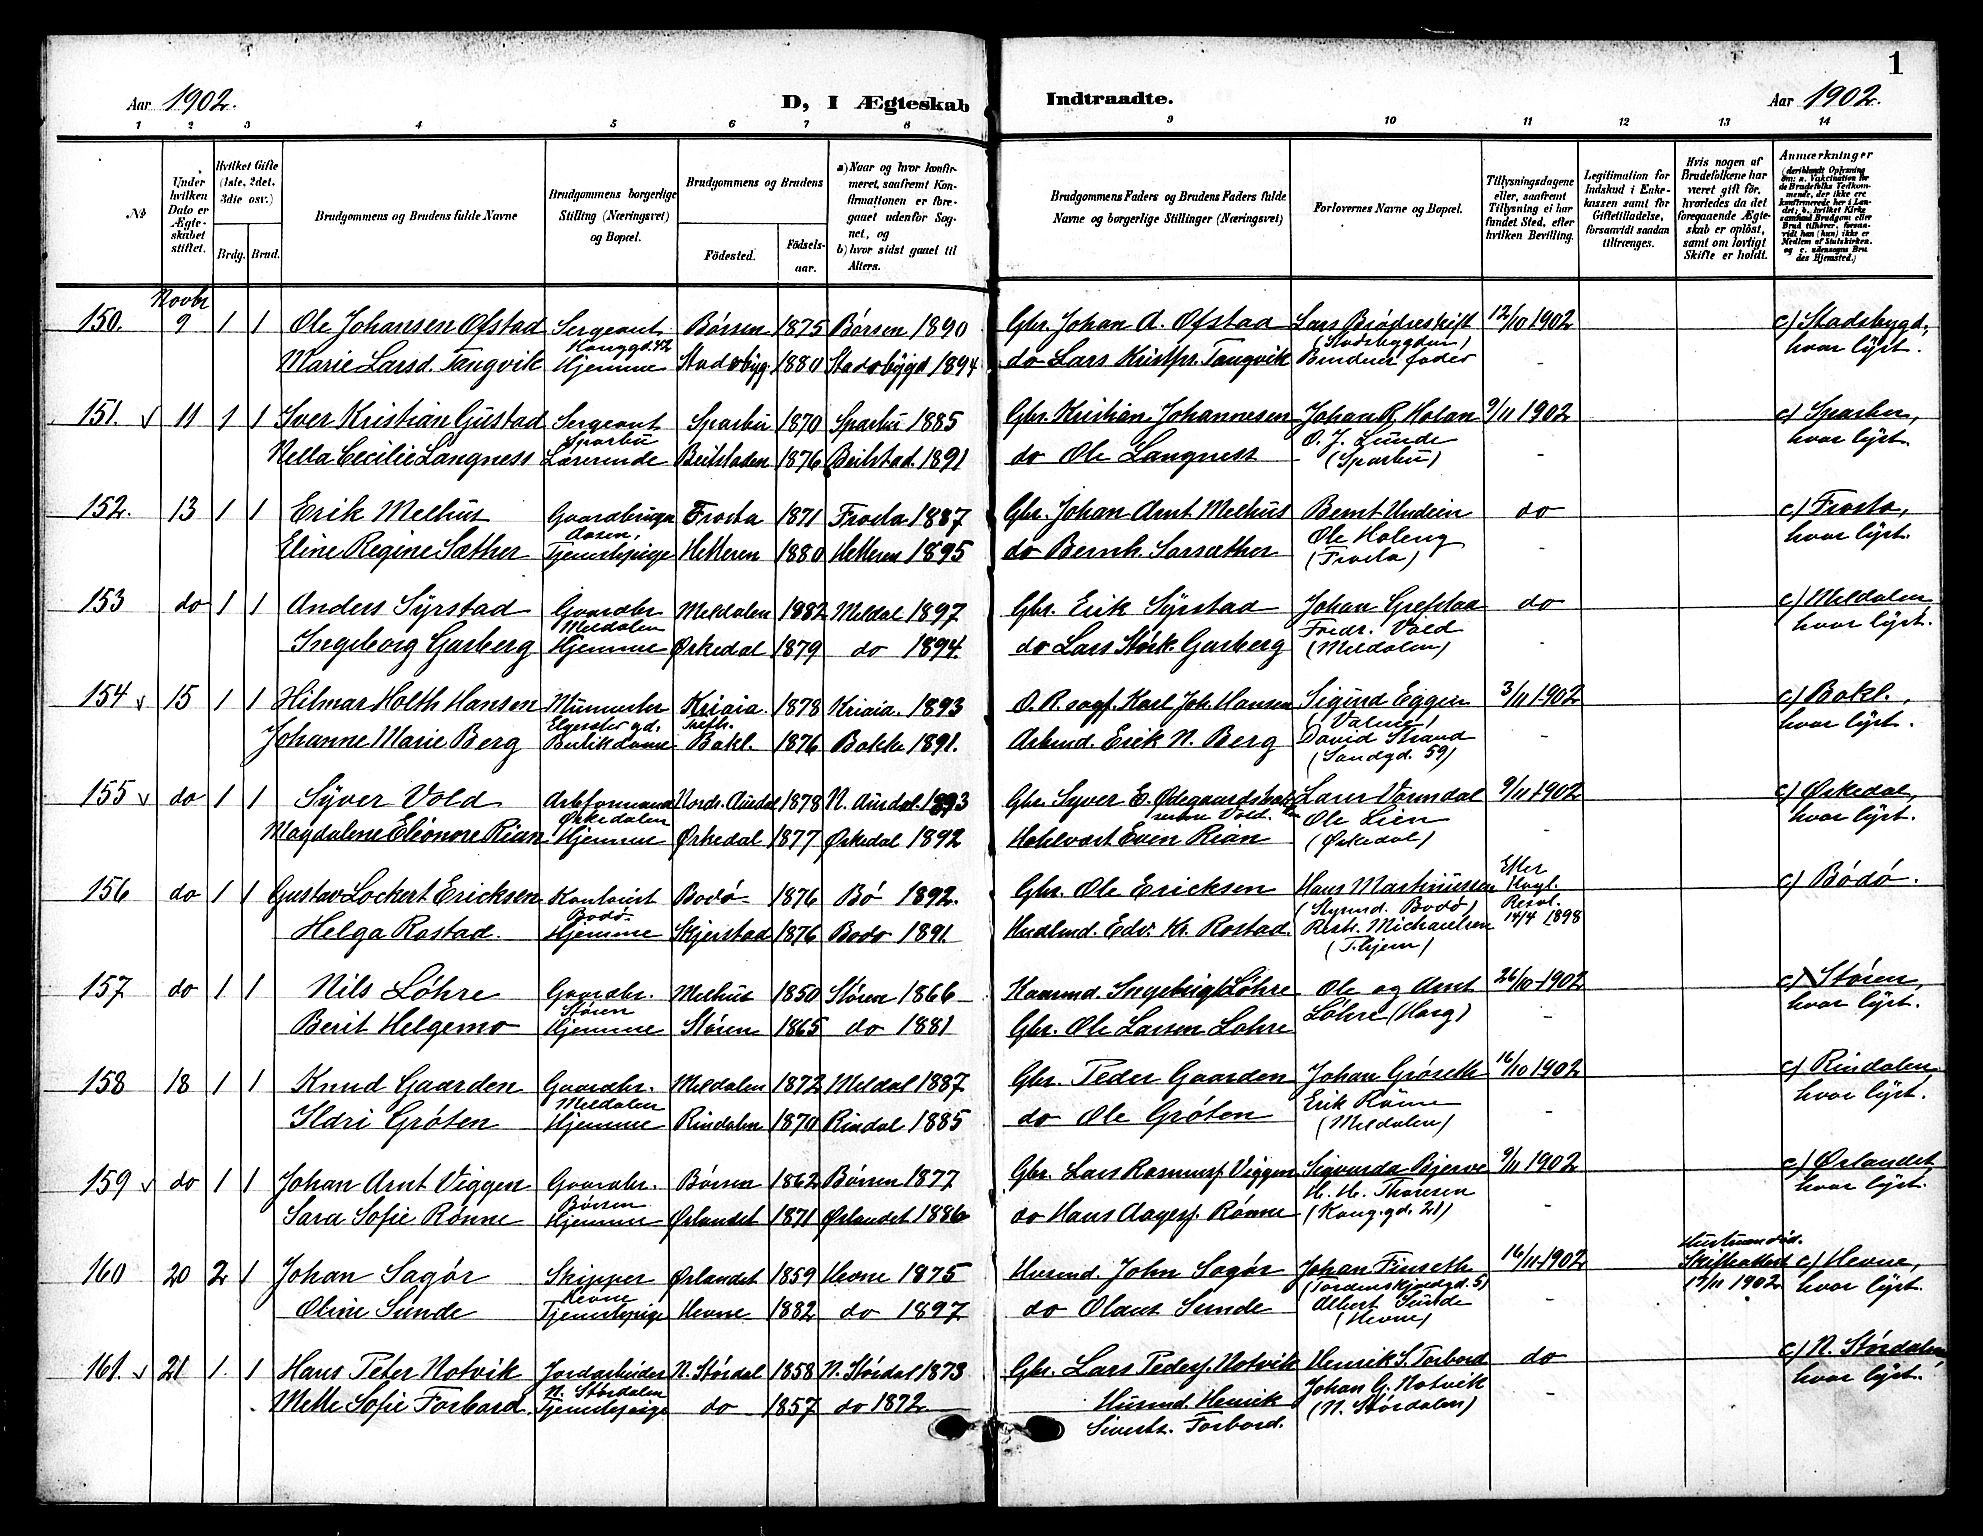 1
Aar 1902. D, I Ægteskab Indtraadte. Aar 1902.
1 2 3 4 5 6 7 8 9 10 11 12 13 14
No
Under hvilken Dato er Ægteskabet stiftet.
Hvilket Gifte (1ste, 2det, 3die osv.)
Brdg. Brud.
Brudgommens og Brudens fulde Navne
Brudgommens borgerlige Stilling (Næringsvei) og Bopæl.
Brudgommens og Brudens
Fødested. Fødselsaar.
a) Naar og hvor konfirmeret, saafremt Konfirmationen er foregaaet udenfor Sognet, og
b) hvor sidst gaaet til Alters.
Brudgommens Faders og Brudens Faders fulde Navne og borgerlige Stillinger (Næringsvei)
Forlovernes Navne og Bopæl.
Tillysningsdagene eller, saafremt Tillysning ei har fundet Sted, efter hvilken Bevilling.
Legitimation for Indskud i Enkekassen samt for Giftetilladelse, forsaavidt saadan tiltrænges.
Hvis nogen af Brudefolkene har været gift før, hvorledes da det foregaaende Ægteskab er opløst, samt om lovligt Skifte er holdt.
Anmærkninger (deriblandt Oplysning om: a. Vakcination for de Brudefolks Vedkommende, der ikke ere konfirmerede her i Landet; b. hvilket Kirkesamfund Brudgom eller Brud tilhører, forsaavidt han (hun) ikke er Medlem af Statskirken, og c. udensogns Brudes Hjemsted.)
150. Novbr 9 1 1 Ole Johansen Ofstad Sergeant Konggd. 42 Børsen 1875 Børsen 1890 Gbr. Johan A. Ofstad Lars Brødreskift (Stadsbygden) 12/10 1902 c) Stadsbygd, hvor lyst.
Marie Larsd. Tangvik Hjemme Stadsbyg. 1880 Stadsbygd 1894 do Lars Kristfr. Tangvik Brudens fader -
151. v 11 1 1 Iver Kristian Gustad Sergeant Sparbu Sparbu 1870 Sparbu 1885 Gbr. Kristian Johannesen Johan R. Holan 9/11 1902 c) Sparbu, hvor lyst.
Nella Cecilie Langness Lærerinde Beitstaden 1876 Beitstad. 1891 do Ole Langness O. J. Lunde (Sparbu) -
152. 13 1 1 Erik Melhus Gaardbruger Aasen, Frosta 1871 Frosta 1887 Gbr. Johan Arnt Melhus Bernt Undein do c) Frosta, hvor lyst.
Eline Regine Sæther Tjenestepige Hitteren 1880 Hitteren 1895 do Bernh. Sorsæther Ole Holeng (Frosta) -
153 do 1 1 Anders Syrstad Gaardbr Meldalen Meldalen 1882 Meldal 1897 Gbr. Erik Syrstad Johan Grefstad do c) Meldalen, hvor lyst.
Ingeborg Garberg Hjemme Ørkedal 1879 do 1894. do Lars Størk. Garberg Fredr. Vold (Meldalen) -
154 v 15 1 1 Hilmar Holth Hansen Murmester Kriaia. 1878 Kriaia. 1893 Karl Joh. Hansen Sigurd Eggen 3/11 1902 c) Bakl., hvor lyst.
Johanne Marie Berg Butikdame Bakl. 1876 Bakke 1891. Arbmd. Erik N. Berg David Strand (Sandgd. 59) -
155 v do 1 1 Syver Vold Arbformand Ørkedalen Nordr. Aurdal 1878 N. Aurdal. 1893 Gbr. Syver E. Vold. Lars Vormdal 9/11 1902 c) Ørkedal, hvor lyst.
Magdalene Eleonore Rian Hjemme Ørkedal 1877 Ørkedal 1892 Even Rian Ole Lien (Ørkedal) -
156 do 1 1 Gustav Lockert Ericksen Kontorist Bodø Bodø 1876 Bø 1892. Gbr. Ole Ericksen Hans Martinussen (Styrmd. Bodø) Efter Kngl. Resol. 14/4 1898 c) Bødø.
Helga Rostad. Hjemme Skjerstad 1876 Bodø 1891. Hndlmd. Edv. Kr. Rostad. Michaelsen (T.hjem)
157 do 1 1 Nils Løhre Gaardbr. Støren Melhus 1850 Støren 1866 Kaarmd. Ingebrigt Løhre Ole og Arnt 26/10 1902 c) Støren, hvor lyst.
Berit Helgemo Hjemme Støren 1865 do 1881 Gbr. Ole Larsen Løhre Løhre (Horg) -
158 18 1 1 Knud Gaarden Gaardbr. Meldalen Meldalen 1872 Meldal 1887 Gbr. Peder Gaarden Johan Grøseth 16/10 1902 c) Rindalen, hvor lyst.
Ildri Grøten Hjemme Rindalen 1870 Rindal 1885 do Ole Grøten Erik (Meldalen) -
159 v do 1 1 Johan Arnt Viggen Gaardbr. Børsen Børsen 1862 Børsen 1877 Gbr. Lars Rasmusf. Viggen Sigvarda Bjerve 9/11 1902 c) Ørlandet, hvor lyst.
Sara Sofie Rønne Hjemme Ørlandet 1871 Ørlandet 1886 do Hans Aagesf. Rønne H. H. Thoresen (Kong.gd. 21) -
160 20 2 1 Johan Sagør Skipper Hevne Ørlandet 1859 Hevne 1875 Husmd. John Sagør Johan Finseth (Tordenskjoldgd. 5) 16/11 1902 Hustruen død. Skifteattest 1902 c) Hevne, hvor lyst.
Oline Sunde Tjenestepige Hevne 1882 do 1897 do Olaus Sunde Albert Sunde (Hevne) -
161. v 21 1. 1 Hans Peter Notvik Jordarbeider N. Størdalen N. Størdal 1858 N. Størdal 1873 Gbr. Lars Pedersf. Notvik Henrik S. Forbord do c) N. Størdalen, hvor lyst.
Mette Sofie Forbord. Tjenestepige do 1857 do 1872 Husmd. Henrik Sivertz. Forbord. Johan G. Notvik (N. Størdalen) -